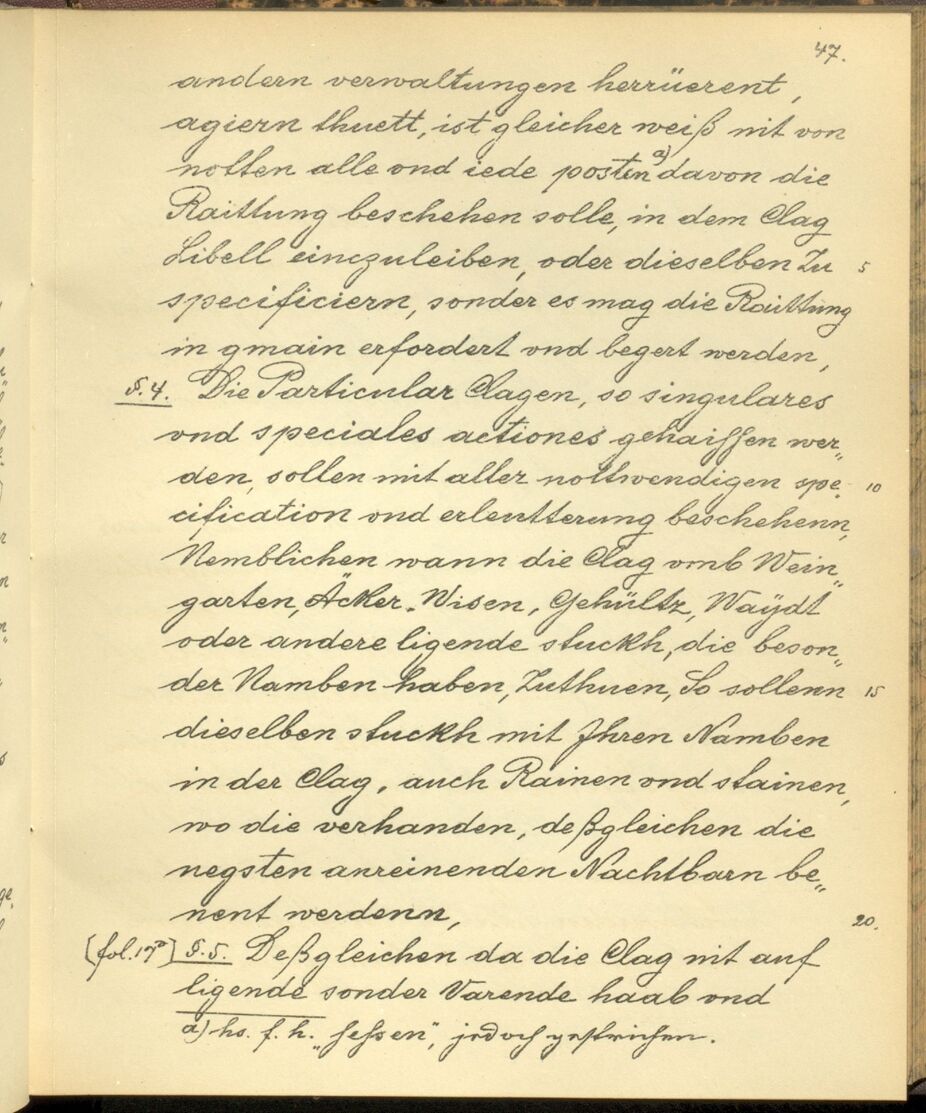 47.
andern verwaltungen herrüerent,
agiern thuett, ist gleicher weiß nit von
notten alle vnd iede posten a) davon die
Raittung beschehen solle, in dem Clag
Libell einczuleiben, oder dieselben Zu 5
specificiern, sonder es mag die Raittung
in gmain erfordert vnd begert werden,
§. 4. Die Particular Clagen, so singulares
vnd speciales actiones gehaissen wer„
den, sollen mit aller nottwendigen spe„ 10
cification vnd erleutterung beschehenn,
Nemblichen wann die Clag vmb Wein„
garten, Äcker, Wisen, Gehültz, Waÿdt
oder andere ligende stuckh, die beson„
der Namben haben, Zuthuen, So sollenn 15
dieselben stuckh mit Jhren Namben
in der Clag, auch Rainen vnd stainen,
wo die verhanden, deßgleichen die
negsten anreinenden Nachtbarn be„
nent werdenn, 20.
[fol. 17a] §. 5. Deßgleichen da die Clag nit auf
ligende sonder Varende haab vnd
a) hs. f. h. „sessen“, jedoch gestrichen.